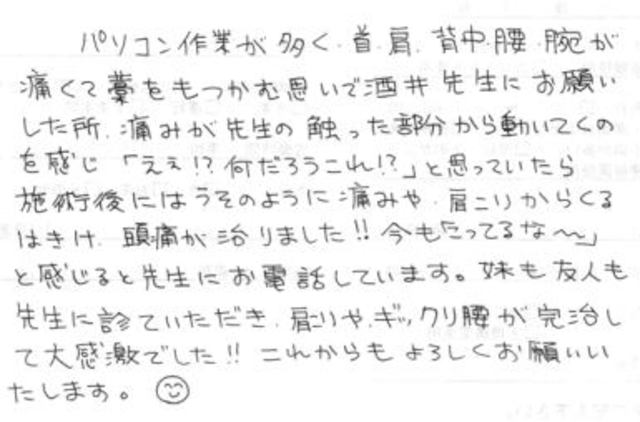 パソコン作業が多く、首、肩、背中、腰、腕が
痛くて藁をもつかむ思いで酒井先生にお願い
した所、痛みが先生の触った部分から動いてくの
を感じ「ええ!?何だろうこれ!?」と思っていたら
施術後にはうそのように痛みや、肩こりからくる
はきけ、頭痛が治りました!!今も「こってるな〜」
と感じると先生にお電話しています。妹も友人も
先生に診ていただき、肩こりや、ギックリ腰が完治し
て大感激でした!!これからもよろしくお願いい
たします。